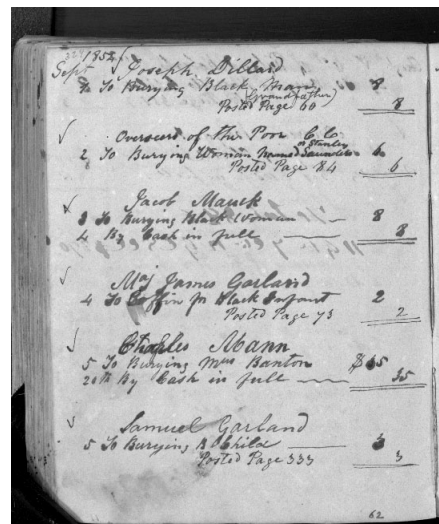 1852
Sept Joseph Dillard
2 To Burying Black Man 8
(Grandfather)
Posted Page 60 8
Overseers of the Poor C C
or Stanley
2 To Burying Woman Named Saunders 6
Posted Page 84 6
Jacob Mauck
3 To Burying Black Woman 8
4 By Cash in full 8
Maj James Garland
4 To Coffin for Black Infant 2
Posted Page 73 2
Charles Mann
5 To Burying Mrs Banton $35
20th By Cash in full 35
Samuel Garland
5 To Burying B Child 3
Posted Page 333 3
62